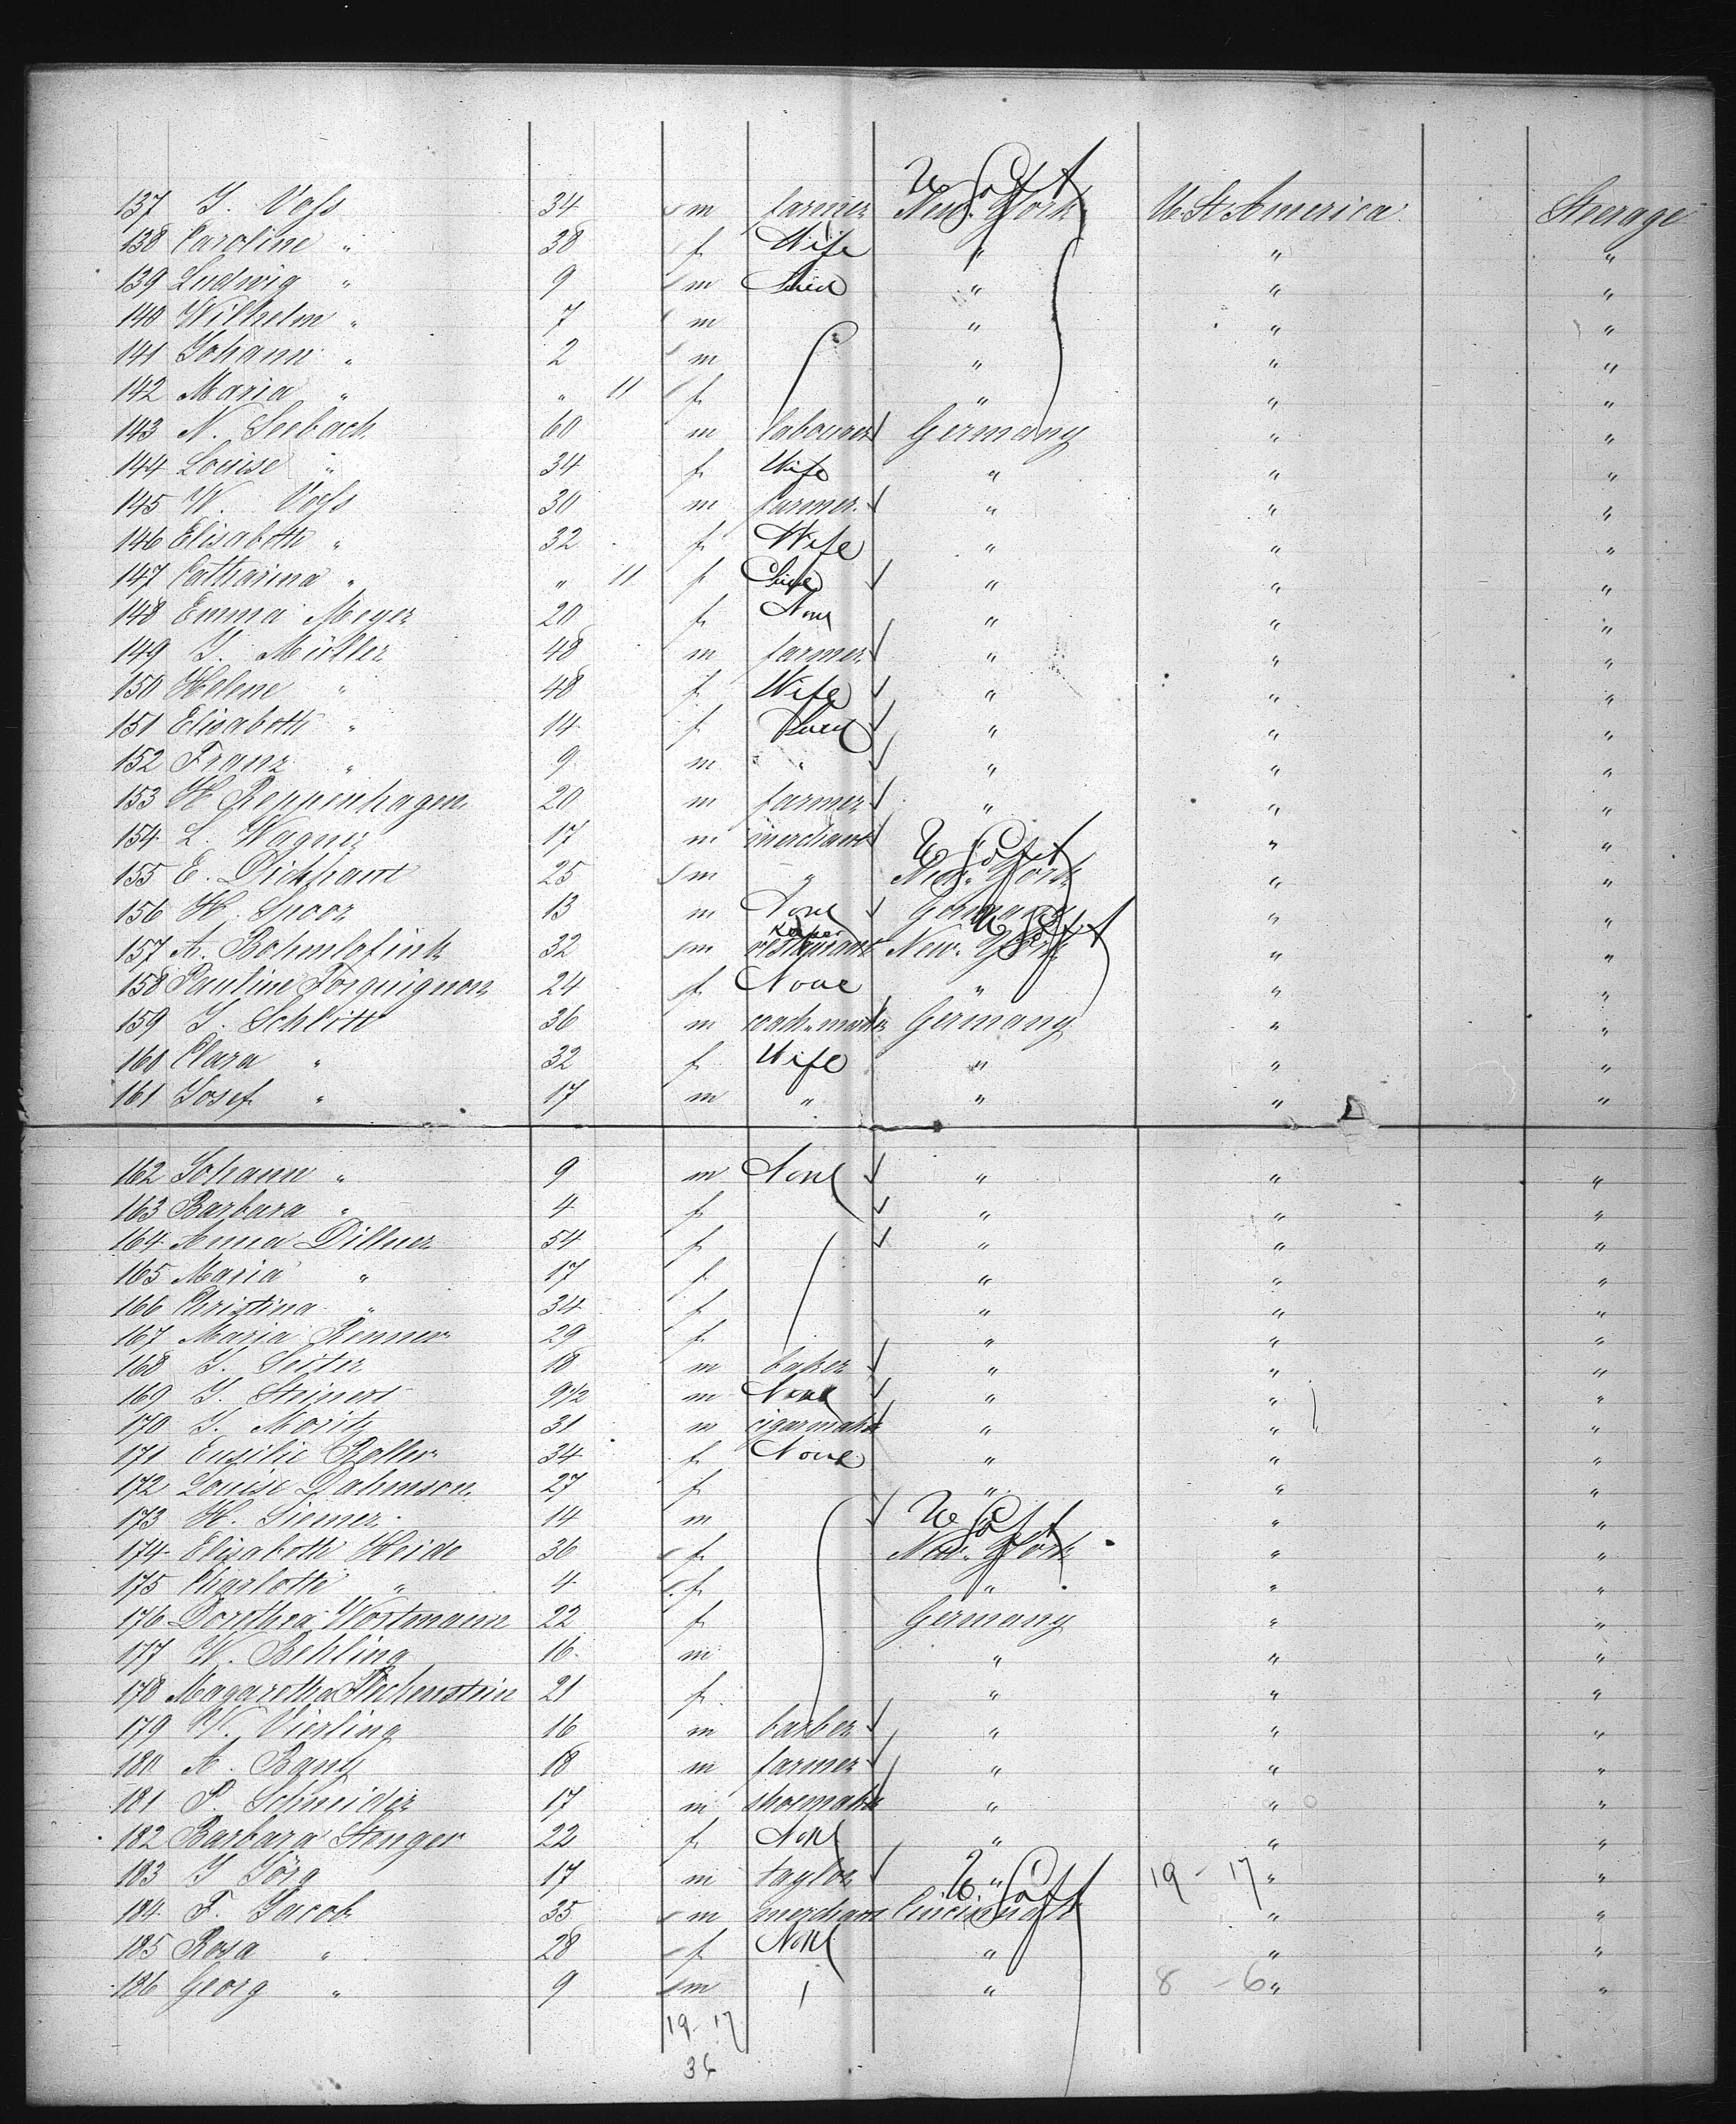 U St
137 J. Voss 34 m farmer New-York U St America Steerage
138 Caroline " 38 f Wife " " "
139 Ludwig " 9 m Child " " "
140 Wilhelm " 7 m " " "
141 Johann " 2 m " " "
142 Maria " " 11 f " " "
143 N. Seebach 60 m labourer Germany " "
144 Louise " 34 f Wife " " "
145 W. Voss 30 m farmer " " "
146 Elisabeth " 32 f Wife " " "
147 Catharina " " 11 f Child " " "
148 Emma Meyer 20 f None " " "
149 J. Müller 48 m farmer " " "
150 Helene " 48 f Wife " " "
151 Elisabeth " 14 f " " "
152 Franz " 9 m " " " "
153 H Reppenhagen 20 m farmer " " "
154 L. Wagner 17 m merchant " " "
U St
155 E. 25 m " New-York " "
156 H. Spoor 13 m None Germany " "
U St
157 A. 32 m restaurant keeper New-York " "
158 Pauline Forquignon 24 f None " " "
159 J. Schlitt 36 m Germany " "
160 Clara " 32 f Wife " " "
161 Josef " 17 m " " " "
162 Johann " 9 m None " " "
163 Barbara " 4 f " " "
164 Anna Dillner 54 f " " "
165 Maria " 17 f " " "
166 Christina " 34 f " " "
167 Maria Renner 29 f " " "
168 J. Seiter 18 m baker " " "
169 J. Steinert 9 1/2 m None " " "
170 J. Moritz 31 m cigarmaker " " "
171 Emilie Roller 34 f None " " "
172 Louise Dahmson 27 f " " "
173 H. Siemer 14 m " " "
U St
174 Elisabeth Heide 36 f New-York " "
175 Charlotte " 4 f " " "
176 Dorothea Wortmann 22 f Germany " "
177 W. Behling 16 m " " "
178 Magaretha Flechenstein 21 f " " "
179 W. Vierling 16 m barber " " "
180 A. Bang 18 m farmer " " "
181 P. Schneider 17 m shoemaker " " "
182 Barbara Stenger 22 f None " " "
183 J Jörg 17 m taylor " 19 - 17 " "
U St
184 F. Jacob 35 m merchant Cincinnati " "
185 Rosa " 28 f None " " "
186 Georg " 9 m " 8 - 6 " "
19 - 17
36